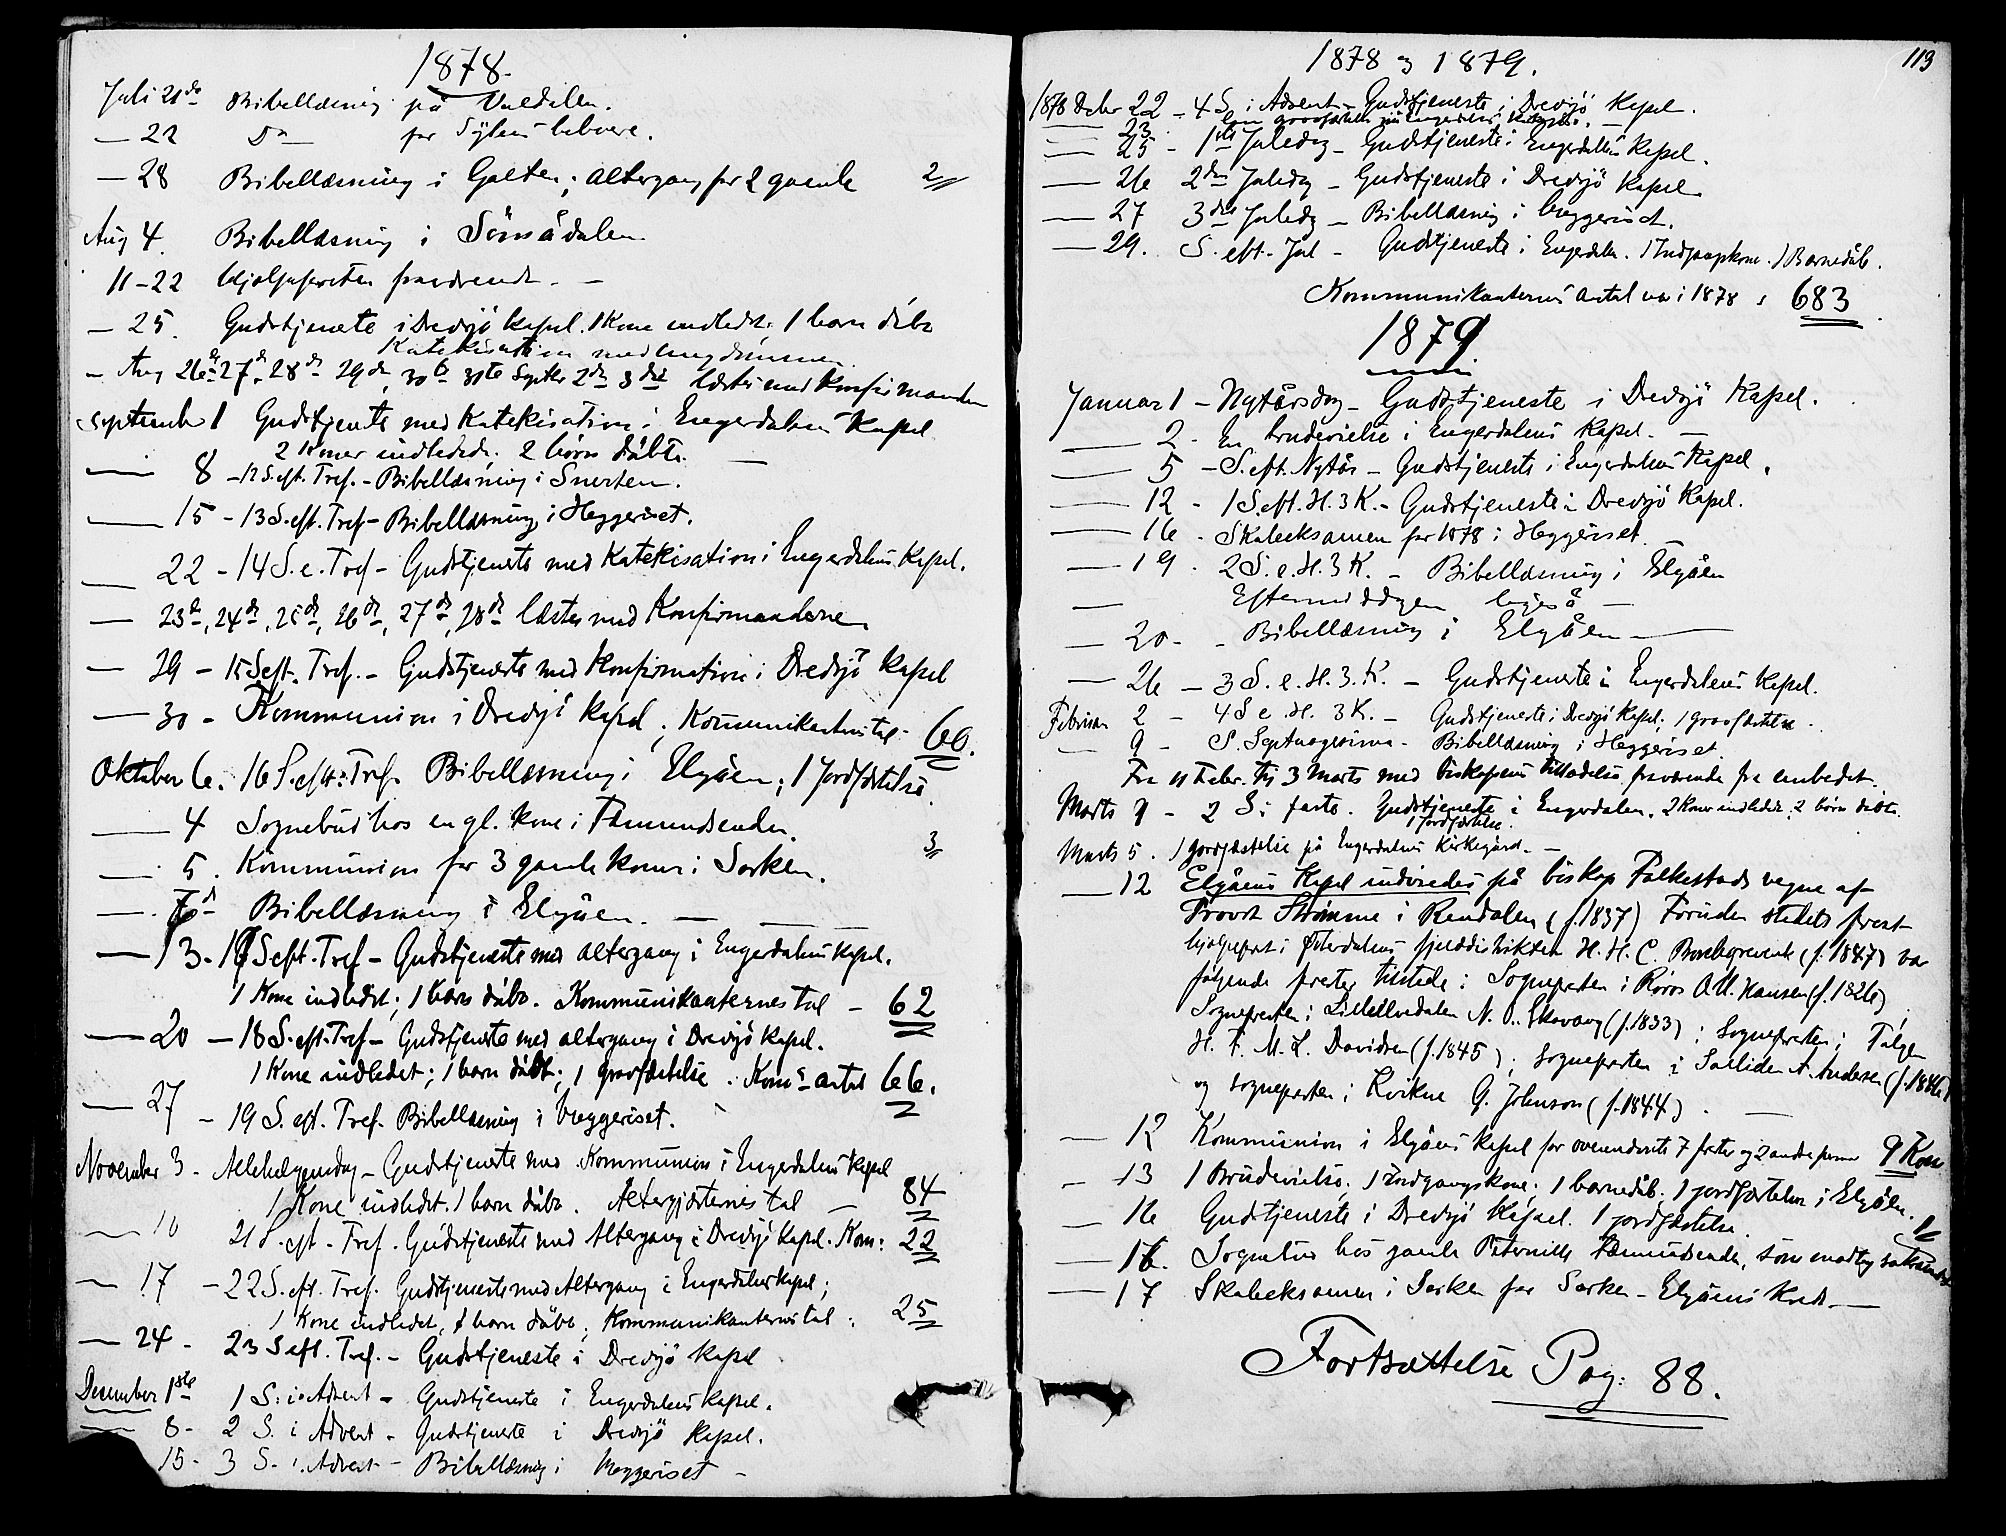 1878.
Juli 21de Bibellæsning på Valdalen.
— 22 Do — for Sylens beboere.
— 28 Bibellæsning i Galten; altergang for 2 gamle 2
Aug 4. Bibellæsning i Sömådalen
11-22 Hjelpepresten fraværende. —
— 25. Gudstjeneste i Drevsjö kapel. 1 Kone indledet. 1 barn döbt
Katekisation med ungdommen
— Aug 26de 27de 28de 29de 30te 31te Septbr 2de 3die læstes med Konfirmanden
September 1 Gudstjeneste med Katekisation i Engerdalens Kapel
2 Koner indledede. 2 börn döbte. —
— 8 – 12 S. eft. Tref. – Bibellæsning i Snerten.
— 15 – 13 S. eft. Tref – Bibellæsning i Heggeriset.
— 22 – 14 S. e. Tref – Gudstjeneste med Katekisation i Engerdalens Kapel.
— 23de, 24de, 25de, 26de, 27de, 28de læstes med Konfirmanderne.
— 29 – 15 S eft. Tref. – Gudstjeneste med Konfirmation i Drevsjö Kapel
— 30 – Kommunion i Drevsjö kapel; Kommunikanternes tal – 60.
Oktober 6. 16 S. eftr. Tref. Bibellæsning i Elgåen; 1 Jordfæstelse.
— 4 Sognebud hos en gl. kone i Fæmundsenden.
— 5. Kommunion for 3 gamle koner i Sorken. 3
— 7de Bibellæsning i Elgåen. —
— 13. 17 S eft. Tref – Gudstjeneste med altergang i Engerdalens Kapel.
1 Kone indledet; 1 barn döbt. Kommunikanternes tal – 62
— 20 – 18 S. eft. Tref – Gudstjeneste med altergang i Drevsjö kapel.
1 Kone indledet; 1 barn döbt; 1 gravfæstelse. Koms antal 66.
— 27 – 19 S. eft. Tref. Bibellæsning i Heggeriset.
November 3. Allehelgensdag – Gudstjeneste med Kommunion i Engerdalens Kapel
1 Kone indledet. 1 barn döbt. Altergjæsternes tal — 84
— 10 21 S. eft. Tref. Gudstjeneste med Altergang i Drevsjö Kapel. Kom: 22
— 17 – 22 S. eft. Tref. Gudstjeneste med Altergang i Engerdalens kapel;
1 Kone indledet, 1 barn döbt; Kommunikanternes tal: 25
— 24 – 23 S eft. Tref. – Gudstjeneste i Drevsjö kapel
December 1ste 1 S. i Advent – Gudstjeneste i Engerdalens Kapel.
— 8 – 2 S. i Advent – Gudstjeneste i Drevsjö Kapel.
15 – 3 S. i Advent – Bibellæsning i Heggeriset –
113
1878 og 1879.
1878 Decbr 22 – 4 S. i Advent – Gudstjeneste i Drevsjö Kapel.
— 23. En gravfæstelse på Engerdalens Kirkegård. —
— 25 – 1ste Juledag – Gudstjeneste i Engerdalens Kapel.
— 26 2den Juledag – Gudstjeneste i Drevsjö Kapel
— 27 3die Juledag – Bibellæsning i Heggeriset.
— 29. S. eft. Jul – Gudstjeneste i Engerdalen. 1 Indgangskone. 1 Barnedåb.
Kommunikanternes antal var i 1878: 683
1879.
Januar 1 – Nytårsdag – Gudstjeneste i Drevsjö Kapel.
— 2. En brudevielse i Engerdalens Kapel. —
— 5 – S. eft. Nytår – Gudstjeneste i Engerdalens Kapel.
— 12 – 1 S. eft. H. 3 K. – Gudstjeneste i Drevsjö Kapel.
— 16. Skoleeksamen for 1878 i Heggeriset
— 19. 2 S. e. H. 3 K. – Bibellæsning i Elgåen
— Eftermiddagen ligeså —
— 20 – – Bibellæsning i Elgåen —
— 26 – 3 S. e. H. 3. K. – Gudstjeneste i Engerdalens Kapel.
Februar 2 – 4 S e. H. 3 K. – Gudstjeneste i Drevsjö Kapel; 1 gravfæstelse.
— 9 – S. Septuagesima – Bibellæsning i Heggeriset.
Fra 11 Febr. til 3 Marts med biskopens tilladelse fraværende fra embedet.
Marts 9 – 2 S i faste. Gudstjeneste i Engerdalen. 2 Koner indledede. 2 börn döbte.
1 Jordfæstelse.
Marts 5. 1 Jordfæstelse på Engerdalens Kirkegård. —
— 12 Elgåens Kapel indviedes på biskop Folkestads vegne af
Provst Strömme i Rendalen (f. 1837) Foruden stedets prest
hjelpeprest i Österdalens fjelddistrikter H. H. C. Borchgrevink (f. 1847) var
følgende prester tilstede: Sognepresten i Röros O. U. Hansen (f. 1826)
Sognepresten i Lilleelvedalen N. O. Skavang (f. 1833); Sognepresten i Tolgen
H. F. M. L. Davidsen (f. 1845); Sognepresten i Sollien A. Andersen (f. 1846)
og sognepresten i Kvikne G. Johnson (f. 1844). —
— 12 Kommunion i Elgåens Kapel for ovennævnte 7 prester og 2 andre personer 9 Kom
— 13 1 Brudevielse. 1 Indgangskone. 1 barnedåb. 1 jordfæstelse i Elgåen.
— 16 Gudstjeneste i Drevsjö Kapel. 1 jordfæstelse.
— 16. Sognebud hos gamle Peternille Fæmundsenden, som modtog sakramentet 1
— 17 Skoleeksamen i Sorken for Sorken – Elgåens Kreds. —
Fortsættelse Pag: 88.